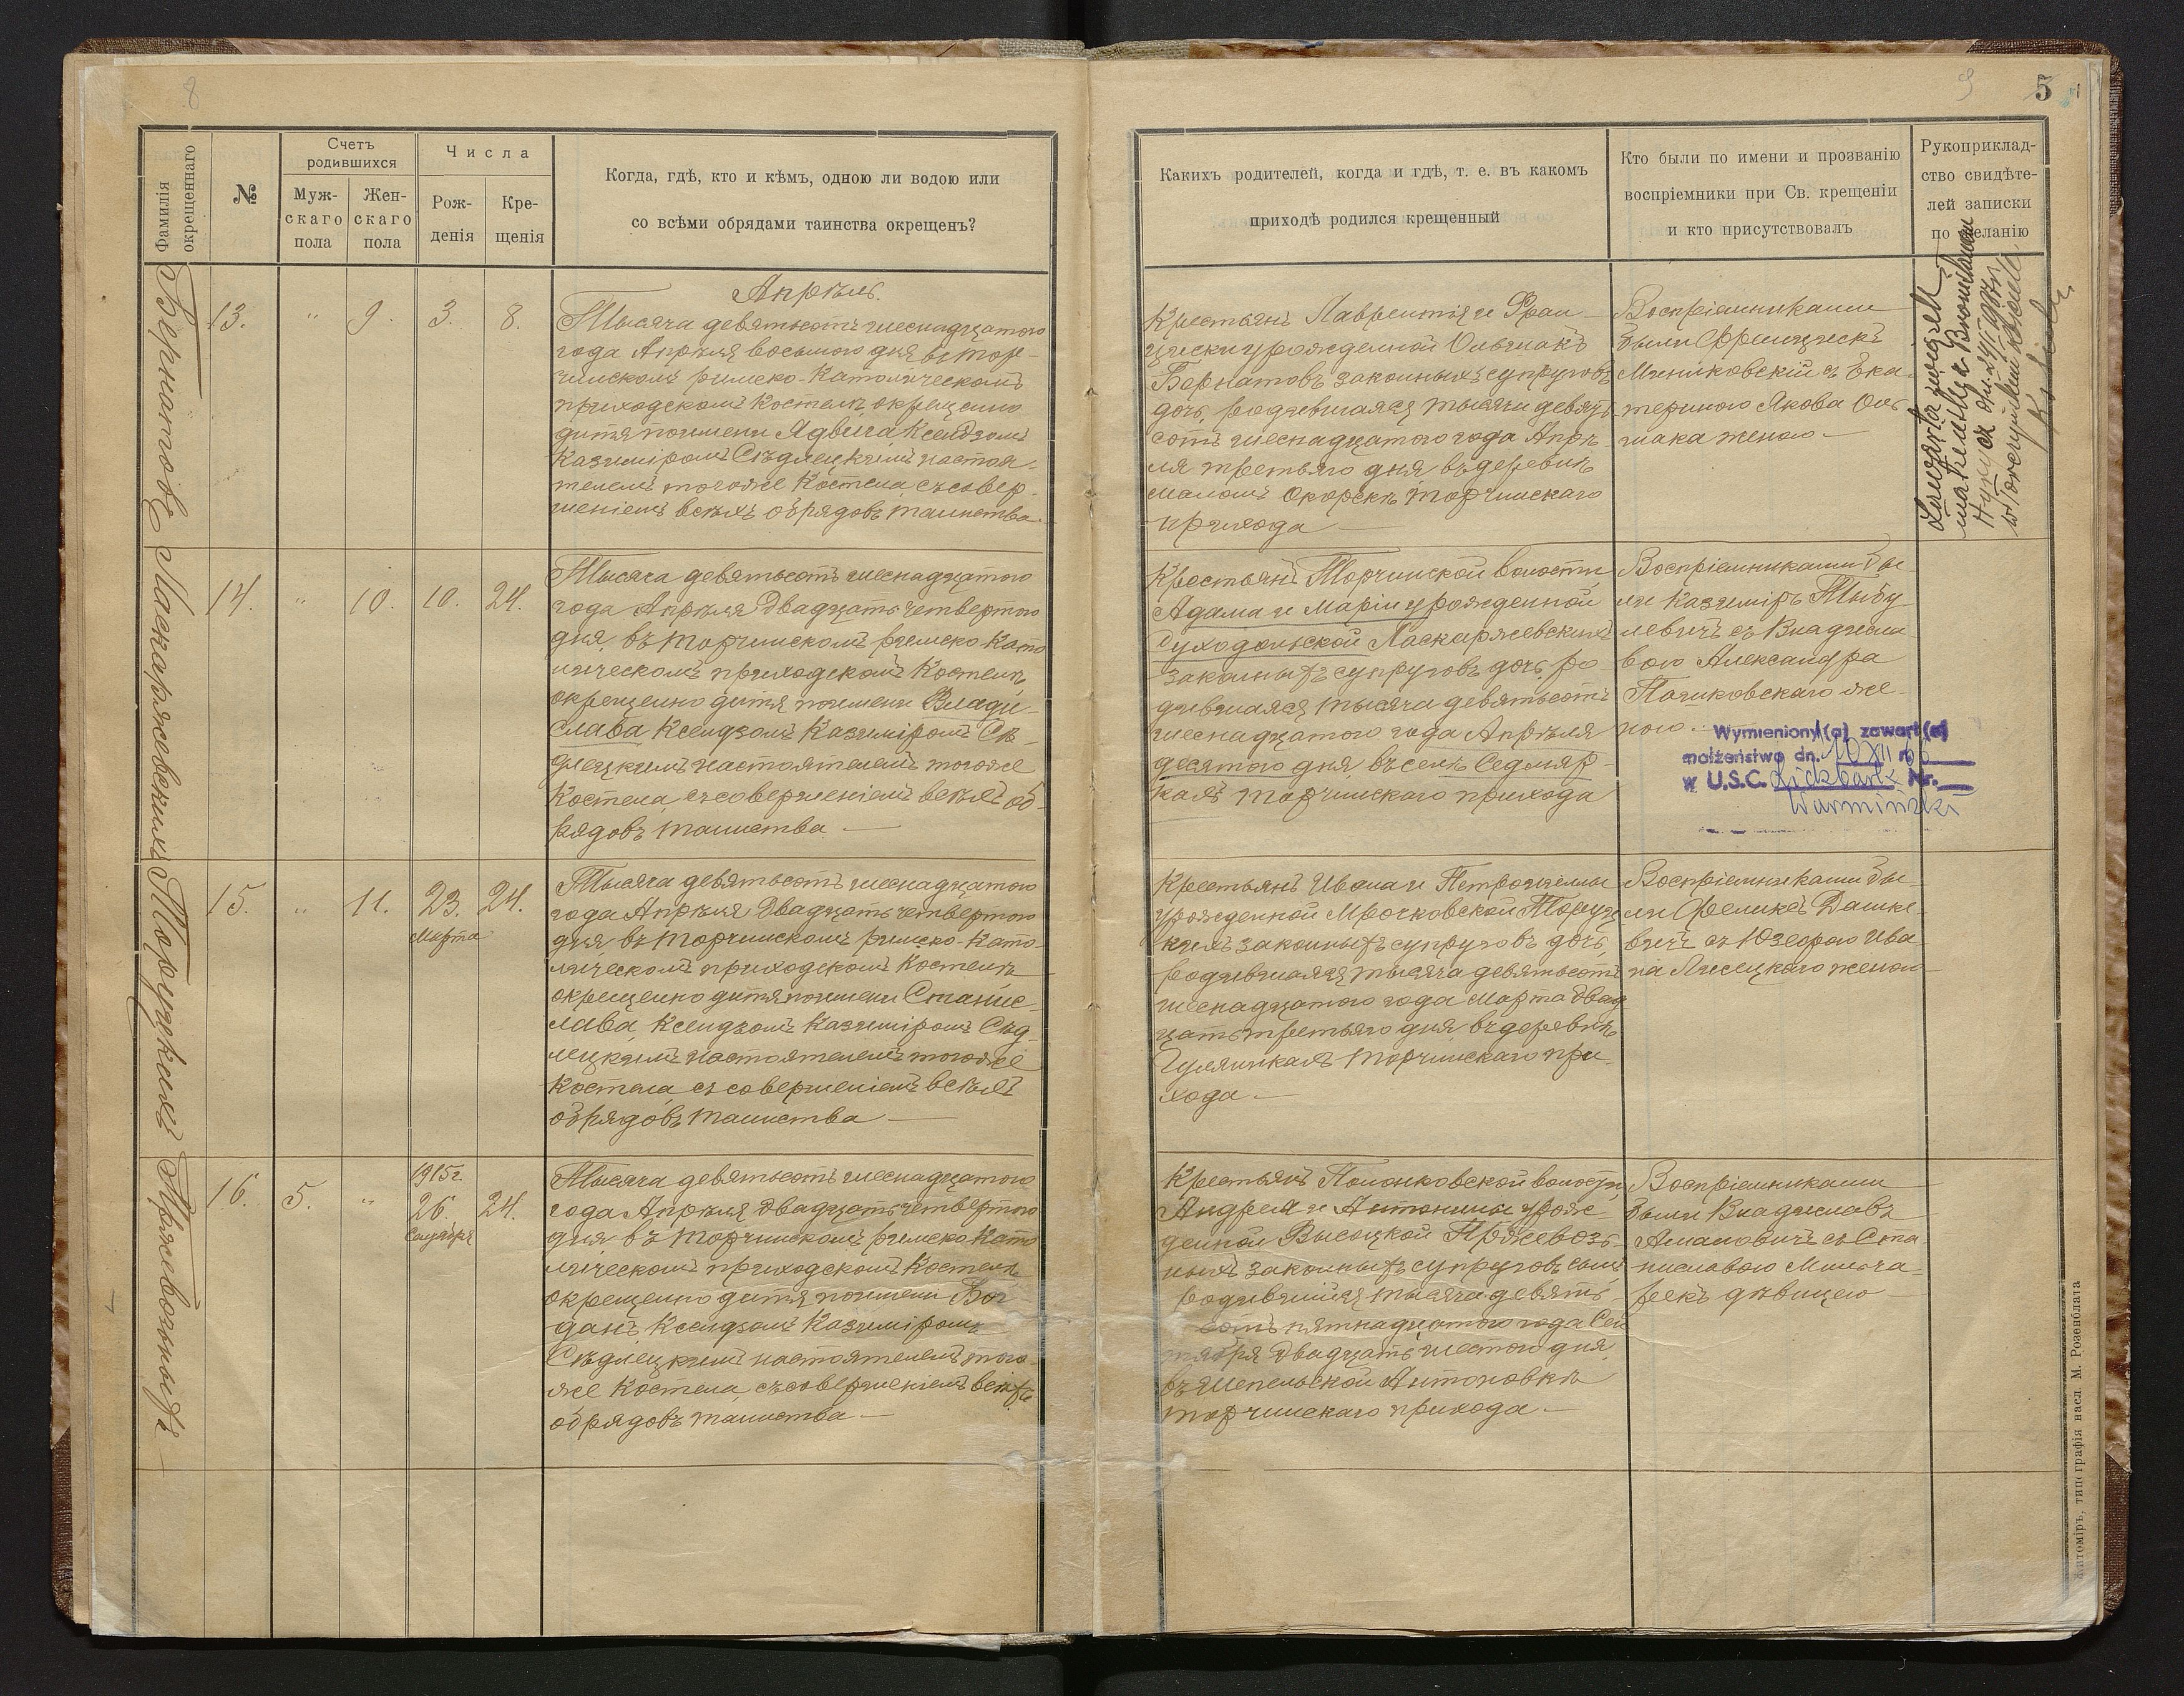 8
Фамилія окрещеннаго
№
Счетъ родившихся
Муж-
скаго
пола
Жен-
скаго
пола
Числа
Рож-
денія
Кре-
щенія
Когда, гдѣ, кто и кѣмъ, одною ли водою или
со всѣми обрядами таинства окрещенъ?
Бернатовъ
13.
"
9.
3.
8.
Апрѣль.
Тысяча девятьсотъ шеснадцатого
года Апрѣля восьмого дня въ Тор-
чинскомъ римско-Католическомъ
приходскомъ Костелѣ окрещено
дитя поимени Ядвига, Ксендзомъ
Казиміромъ Сѣдлецкимъ настоя-
телемъ тогоже Костела, съ совер-
шеніемъ всѣхъ обрядовъ таинства
Ласкаржевскихъ
14.
"
10.
10.
24.
Тысяча девятьсотъ шеснадцатого
года Апрѣля двадцать четвертого
дня, въ Торчинскомъ римско Като
лическомъ приходскомъ Костелѣ
окрещено дитя поимени Влади-
слава Ксендзомъ Казиміромъ Сѣ-
длецкимъ настоятелемъ тогоже
Костела, съ совершеніемъ всѣхъ об-
рядовъ таинства —
15.
"
11.
23.
Марта
24.
Тысяча девятьсотъ шеснадцатого
года Апрѣля двадцать четвертого
дня въ Торчинскомъ римско-Като-
лическомъ приходскомъ Костелѣ
окрещено дитя поимени Станис-
лава, Ксендзомъ Казиміромъ Сѣд-
лецкимъ настоятелемъ тогоже
Костела съ совершеніемъ всѣхъ
обрядовъ таинства —
Пржевозныхъ
16.
5.
"
1915г.
26
Сентября
24.
Тысяча девятьсотъ шеснадцатого
года Апрѣля двадцать четвертого
дня въ Торчинскомъ римско Като
лическомъ приходскомъ Костелѣ
окрещено дитя поимени Бог-
данъ Ксендзомъ Казиміромъ
Сѣдлецкимъ настоятелемъ того-
же Костела, съ совершеніемъ всѣхъ
обрядовъ таинства —
9
5
Какихъ родителей, когда и гдѣ, т. е. въ какомъ
приходѣ родился крещенный
Кто были по имени и прозванію
воспріемники при Св. крещеніи
и кто присутствовалъ
Рукоприклад-
ство свидѣте-
лей записки
по желанію
Крестьянъ Лаврентія и Фран-
циски урожденной Ольшакъ
Бернатовъ законныхъ супруговъ
дочь, родившаяся тысяча девять
сотъ шеснадцатого года Апрѣ
ля третьяго дня въ деревнѣ
Маломъ Окорскѣ Торчинскаго
прихода —
Воспріемниками
были Францискъ
съ Ека-
териною Якова Оль
шака женою —
Крестьянъ Торчинской волости
Адама и Маріи урожденной
Суходольской Ласкаржевскихъ
законныхъ супруговъ дочь, ро-
дившаяся тысяча девятьсотъ
шеснадцатого года Апрѣля
десятого дня, въ селѣ Седмяр-
кахъ Торчинскаго прихода
Воспріемниками бы
ли Казиміръ Тыбу
левичъ съ Владисла
вою Александра
же-
ною —
Wymieniony(a) zawarł(a)
małżeństwo dn. 10 XII r.
w U.S.C. Lidzbark Nr.
Warmiński
Крестьянъ Ивана и Петронелли
урожденной Мрочковской
законныхъ супруговъ дочь,
родившаяся тысяча девятьсотъ
шеснадцатого года Марта двад
цать третьяго дня въ деревнѣ
Торчинскаго при-
хода —
Воспріемниками бы-
ли Феликсъ Дашке-
вичъ съ Юзефою Ива-
на Лисецкаго женою
Крестьянъ Полонковской волости,
Андрея и Антонины урож-
денной Высоцкой Пржевоз-
ныхъ законныхъ супруговъ сынъ
родившійся тысяча девять-
сотъ пятнадцатого года Сен
тября двадцать шестого дня
въ Шепельской Антоновкѣ
Торчинскаго прихода —
Воспріемниками
были Владиславъ
съ Ста-
ниславою
дѣвицею
Житоміръ, типографія насл. М. Розенблата